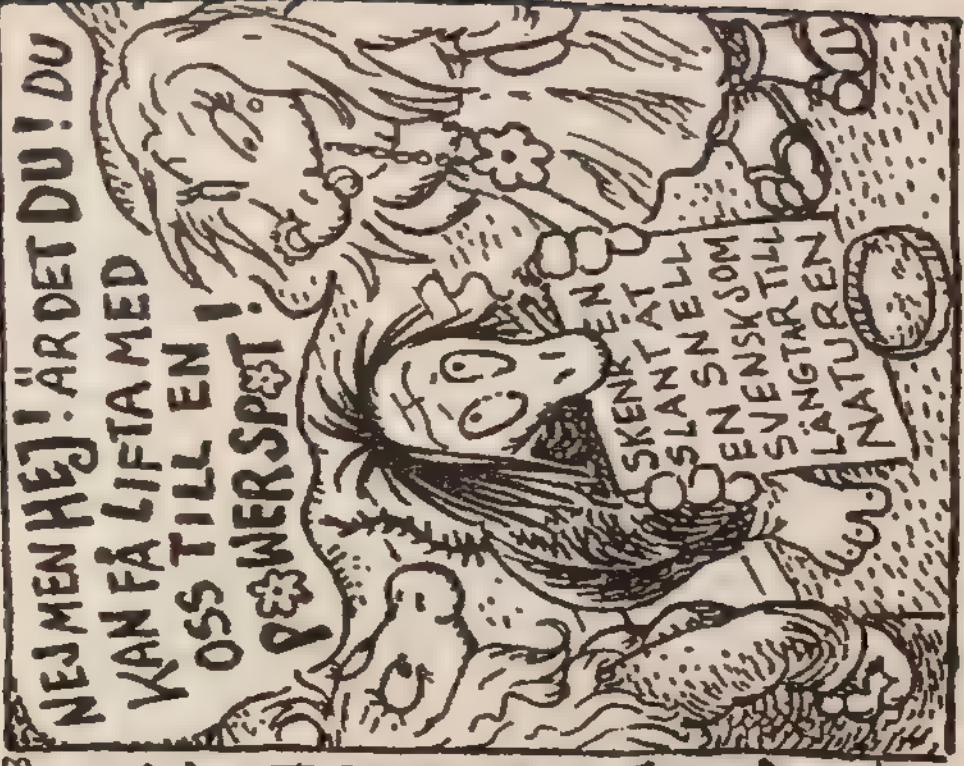 NEJ MEN HEJ! ÄR DET DU! DU
KAN FÅ LIFTA MED
OSS TILL EN
POWERSPOT!
SKENK EN
SLANT ÅT
EN SNELL
SVENSK SOM
LÄNGTAR TILL
NATUREN